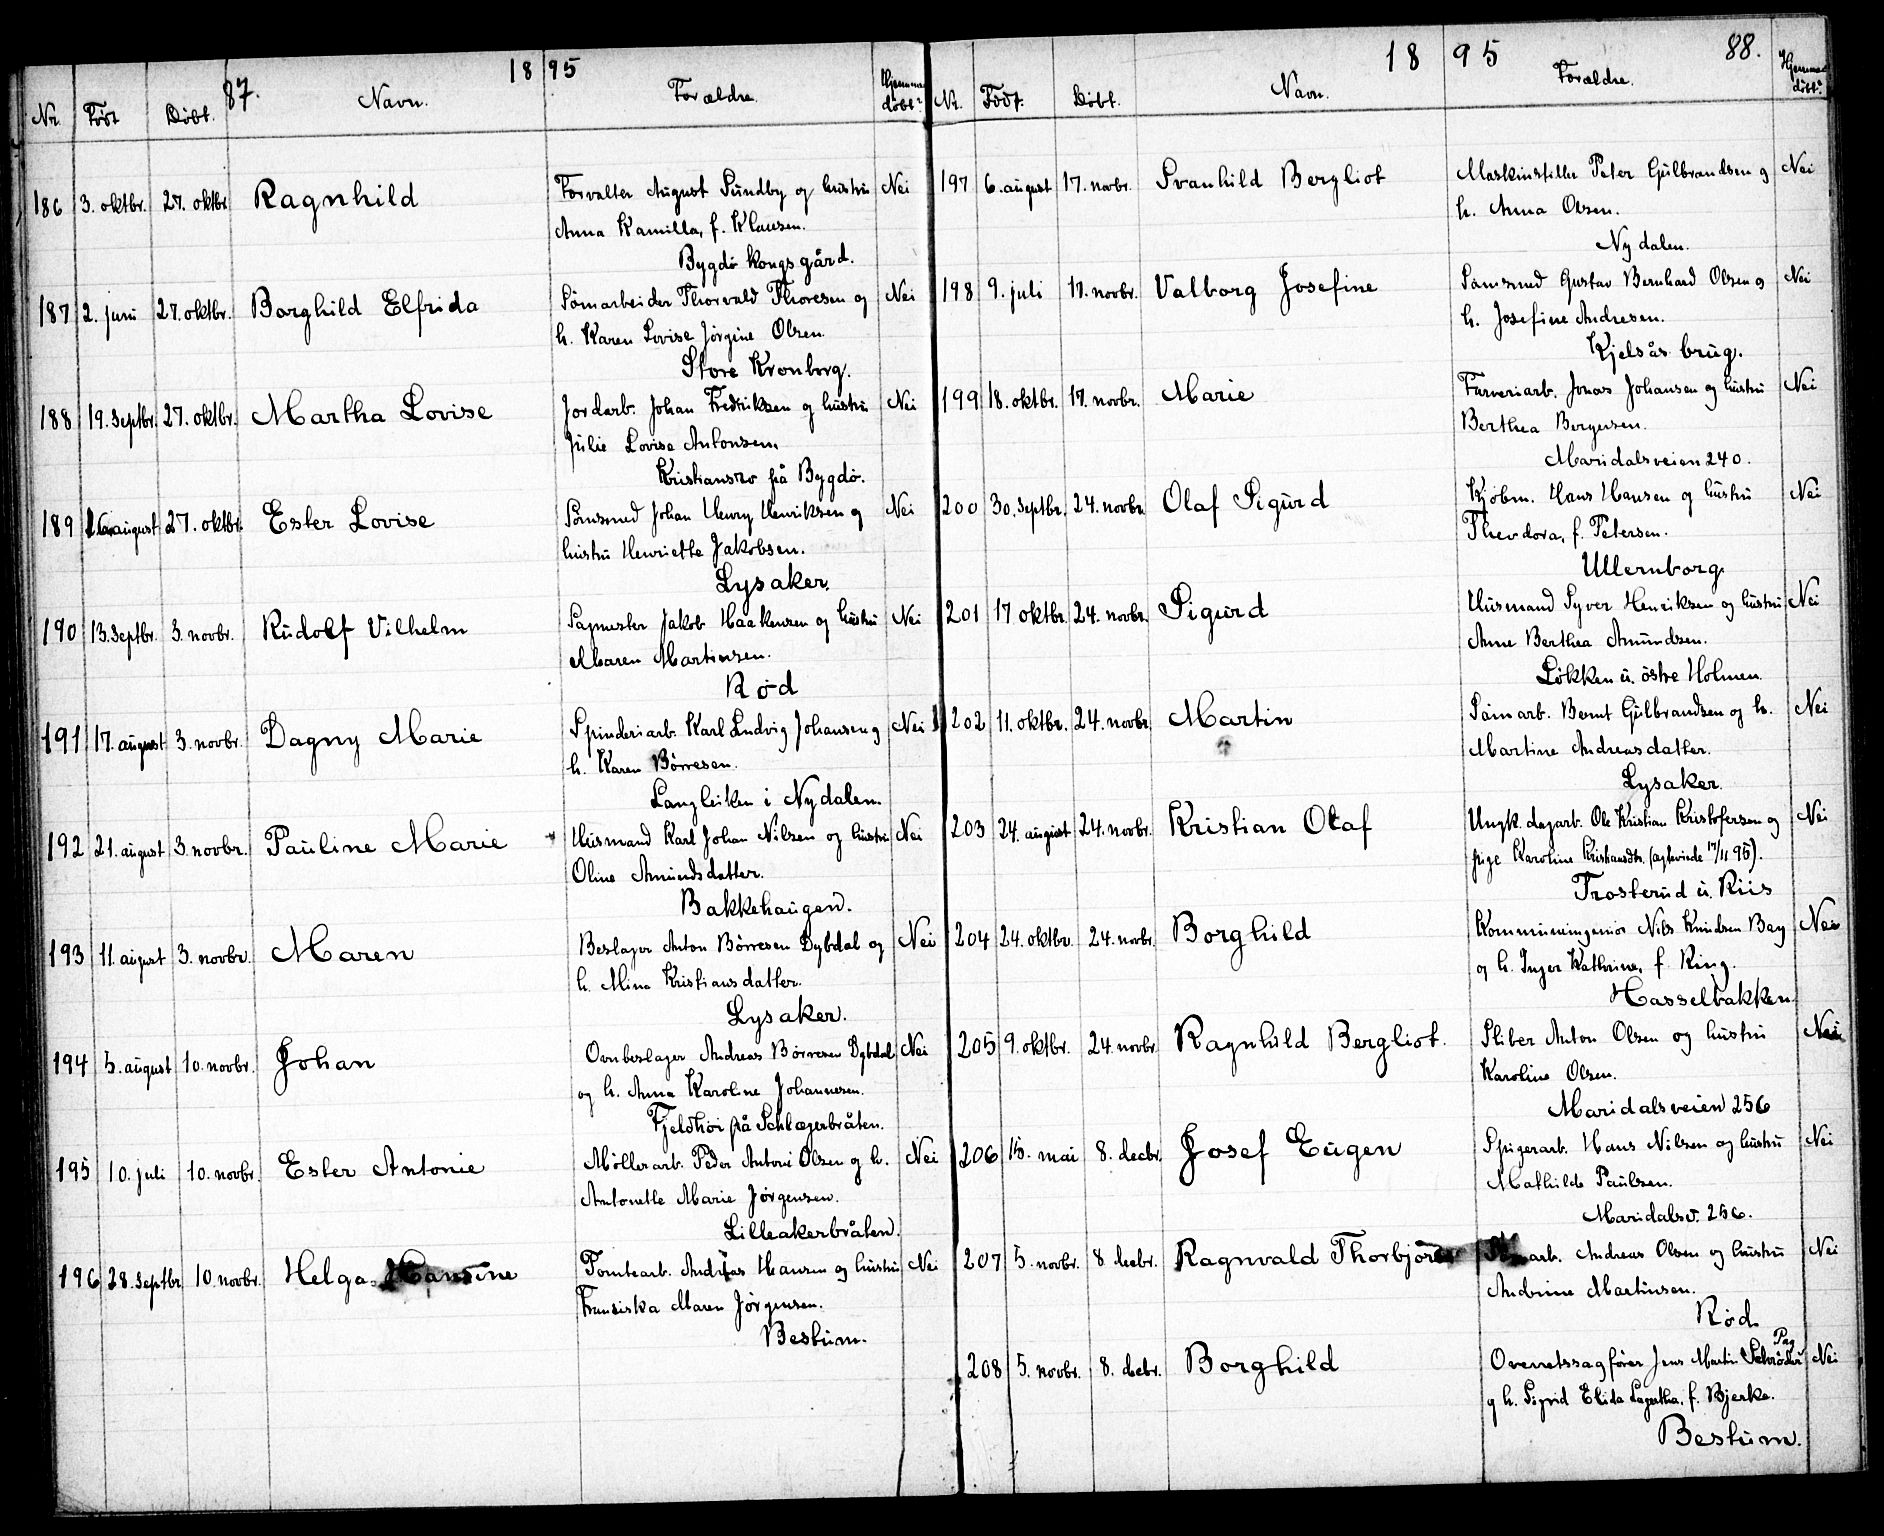 87.
1895
Nr. Født Døbt. Navn. Forældre. Hjemmedøbt?
186 3. oktbr. 27. oktbr. Ragnhild Forvalter August Sundby og hustru Nei
Anna Kamilla, f. Klausen.
Bygdø kongsgård.
187 2. juni 27. oktbr. Borghild Elfrida Sömarbeider Thorvald Thoresen og Nei
h. Karen Lovise Jørgine Olsen.
Store Kronborg.
188 19. septbr. 27. oktbr. Martha Lovise Jordarb. Johan Fredriksen og hustru Nei
Julie Lovise Antonsen.
Kristiansro på Bygdö.
189 august 27. oktbr. Ester Lovise Sömsmed Johan Henry Henriksen og Nei
hustru Henriette Jakobsen.
Lysaker.
190 13. septbr. 3. novbr. Rudolf Vilhelm Sagmester Jakob Haakensen og hustru Nei
Maren Martinsen.
Rød
191 17. august 3. novbr. Dagny Marie Spinderiarb. Karl Ludvig Johansen og Nei
h. Karen Børresen.
Langleiken i Nydalen.
192 21. august 3. novbr. Pauline Marie Husmand Karl Johan Nilsen og hustru Nei
Oline Amundsdatter.
Bakkehaugen.
193 11. august 3. novbr. Maren Beslager Anton Børresen Dybdal og Nei
h. Mina Kristiansdatter.
Lysaker.
194 5. august 10. novbr. Johan Ovnbeslager Andreas Børresen Dybdal Nei
og h. Anna Karoline Johannesen.
Fjeldhøi på Schlægerbråten.
195 10. juli 10. novbr. Ester Antonie Møllerarb. Peder Antoni Olsen og h. Nei
Antonette Marie Jørgensen.
Lilleakerbråten.
196 28. septbr. 10. novbr. Helga Hansine Tomtearb. Andreas Hansen og hustru Nei
Fransiska Maren Jørgensen.
Bestum.
1895
88.
Nr. Født. Døbt. Navn. Forældre. Hjemmedøbt?
197 6. august 17. novbr. Svanhild Bergliot Maskinstiller Peter Gulbrandsen og Nei
h. Anna Olsen.
Nydalen.
198 9. juli 17. novbr. Valborg Josefine Sömsmed Gustav Bernhard Olsen og Nei
h. Josefine Andresen.
Kjelsås brug.
199 18. oktbr. 17. novbr. Marie Farveriarb. Jonas Johansen og hustru Nei
Berthea Bergersen.
Maridalsveien 240.
200 30. septbr. 24. novbr. Olaf Sigurd Kjöbm. Hans Hansen og hustru Nei
Theodora, f. Petersen.
Ullernborg.
201 17 oktbr. 24. novbr. Sigurd Husmand Syver Henriksen og hustru Nei
Anne Berthea Amundsen.
Løkken u. östre Holmen.
202 11. oktbr. 24. novbr. Martin Sömarb. Bernt Gulbrandsen og h. Nei
Martine Andreasdatter.
Lysaker.
203 24. august 24. novbr. Kristian Olaf Ungk. dagarb. Ole Kristian Kristofersen og Nei
pige Karoline Kristiansdtr. (ægteviede 17/11 95).
Trosterud u. Riis
204 24. oktbr. 24. novbr. Borghild Kommuneingeniør Nils Knudsen Bay Nei
og h. Inger Kathrine, f. Ring.
Hasselbakken.
205 9. oktbr. 24. novbr. Ragnhild Bergliot. Sliber Anton Olsen og hustru Nei
Karoline Olsen.
Maridalsveien 256
206 15. mai 8. decbr. Josef Eugen Spigerarb. Hans Nilsen og hustru Nei
Mathilde Paulsen.
Maridalsv. 256.
207 5. novbr. 8. decbr. Ragnvald Thorbjörn Sömarb. Andreas Olsen og hustru Nei
Andrine Martinsen.
Rød.
208 5. novbr. 8. decbr. Borghild Overretssagfører Jens Martin Schrøder Nei
og h. Sigrid Elida Lagertha, f. Bjerke.
Bestum.